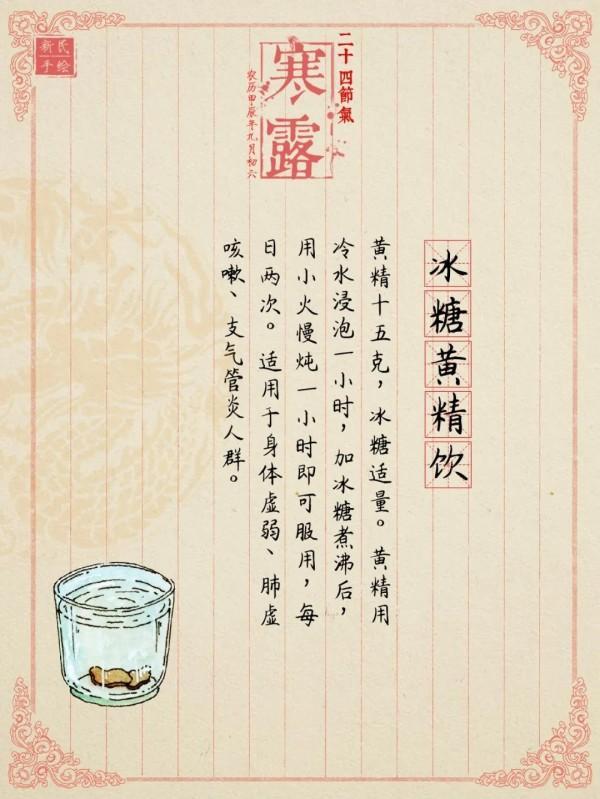 新民
手绘
二十四節氣
寒露
农历甲辰年九月初六
冰糖黄精饮
黄精十五克，冰糖适量。黄精用
冷水浸泡一小时，加冰糖煮沸后，
用小火慢炖一小时即可服用，每
日两次。适用于身体虚弱、肺虚
咳嗽、支气管炎人群。